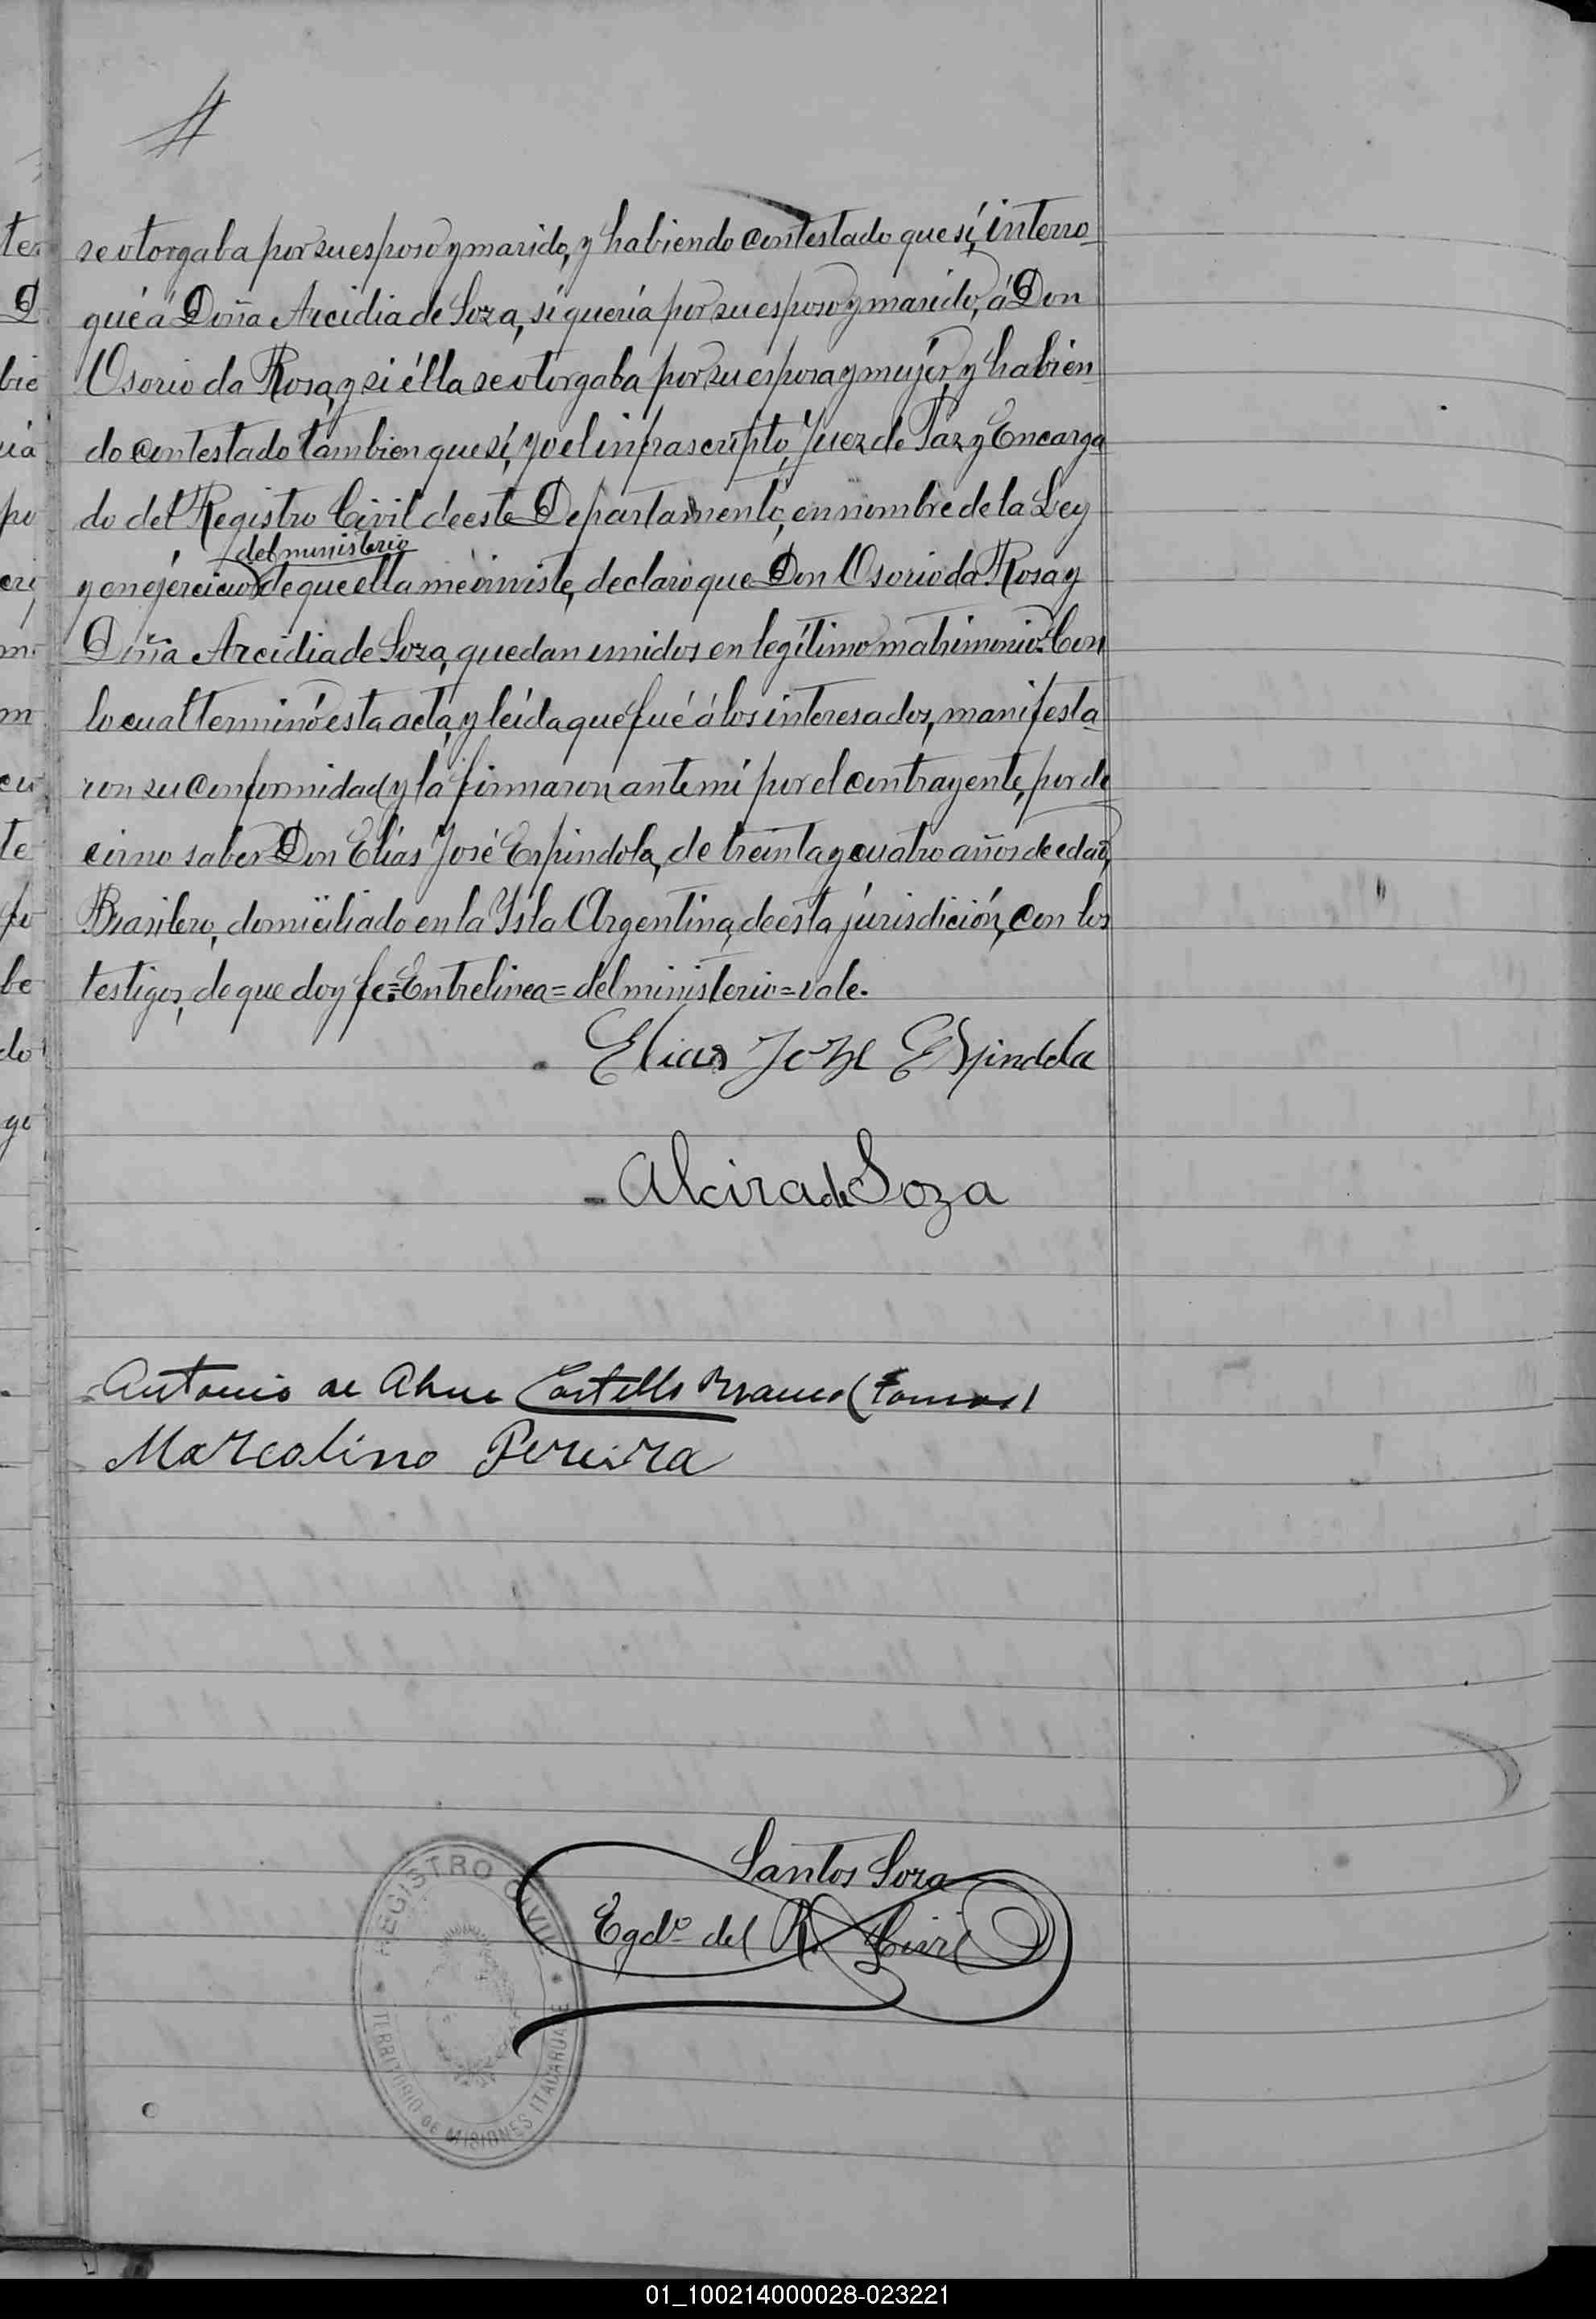 se otorgaba por su esposo y marido, y habiendo contestado que sí, interro-
gué á Doña Arcidia de Soza, si quería por su esposo y marido, á Don
Osorio da Rosa, y si élla se otorgaba por su esposa y mujér, y habien-
do contestado tambien que sí, yo el infrascripto, Juez de Paz y Encarga
do del Registro Civil de este Departamento, en nombre de la Ley
del ministerio
y en ejércicio de que ella me inviste, declaro que Don Osorio da Rosa y
Doña Arcidia de Soza, quedan unidos en legítimo matrimonio. Con
lo cual terminó esta acta, y leída que fué á los interesados, manifesta-
ron su conformidad y la firmaron ante mí por el contrayente, por de
cir no saber Don Elías José Espindola, de treinta y cuatro años de edad,
Brasilero, domiciliado en la Ysla Argentina, de esta júrisdición, con los
testigos, de que doy fe.= Entrelinea = del ministerio = vale.
Elias Joze Espindola
Alcira de Soza
Antonio de Castello Branco
Marcolino Pereira
Santos Soza
Egdo. del R. Civil
REGISTRO CIVIL
TERRITORIO DE MISIONES ITACARUARE
ter
D
bre
po
m
te
fo
be
do
go
01_100214000028-023221